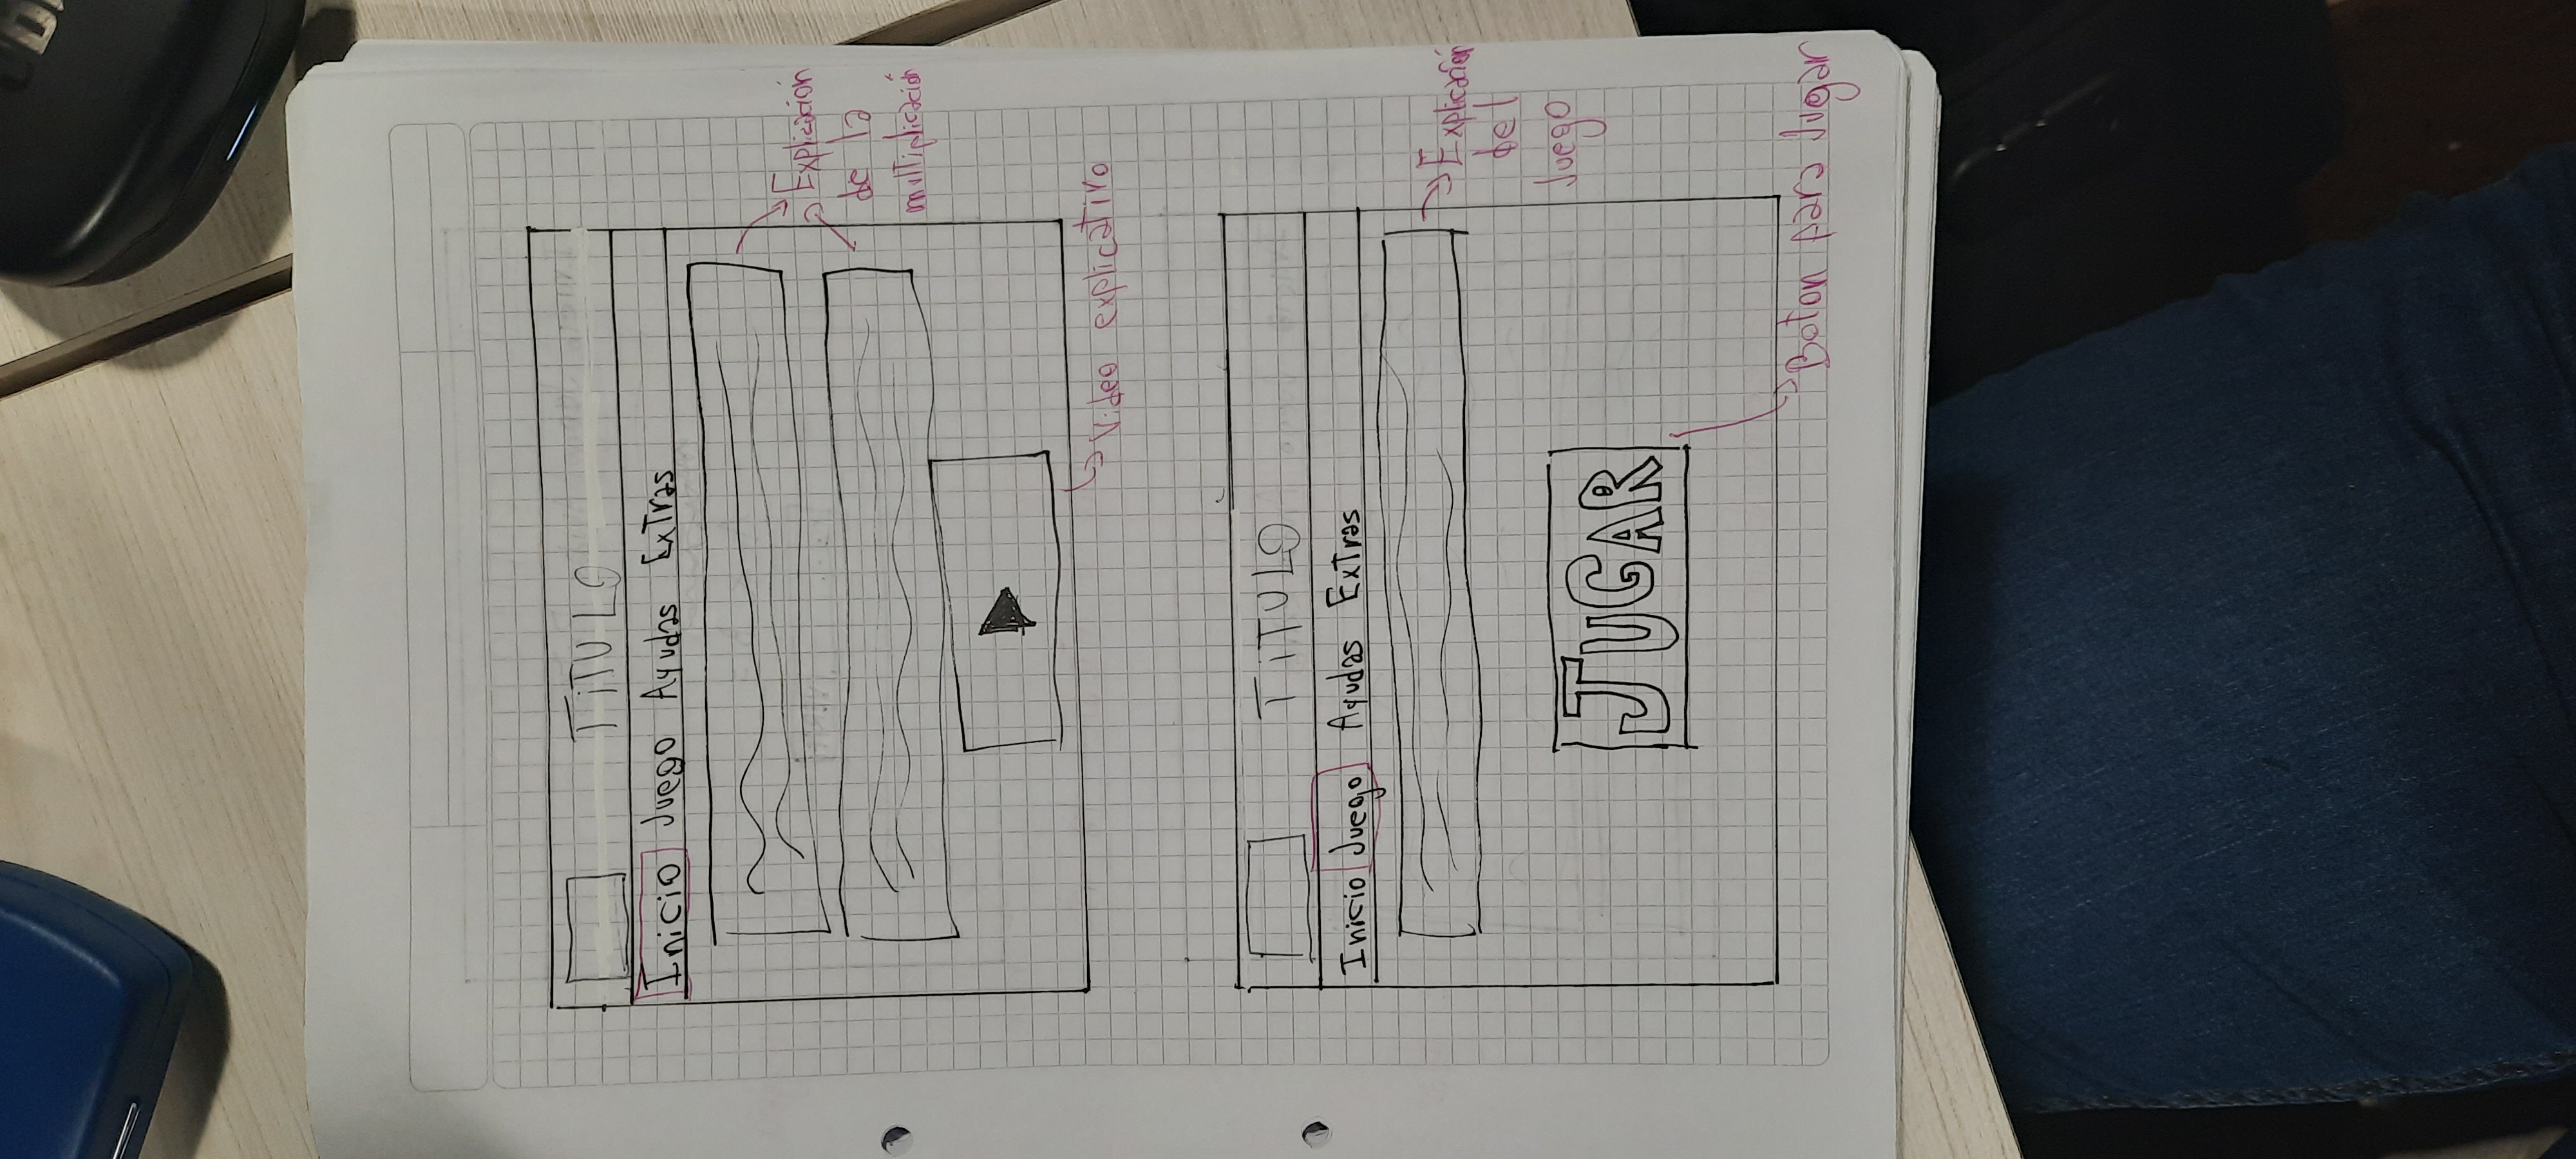 TiTULO
Inicio Juego Ayudas ExTras
Explicación
de la
mulTiplicación
Video explicativo
TiTULO
Inicio Juego Ayudas ExTras
Explicación
del
Juego
JUGAR
Boton para Jugar